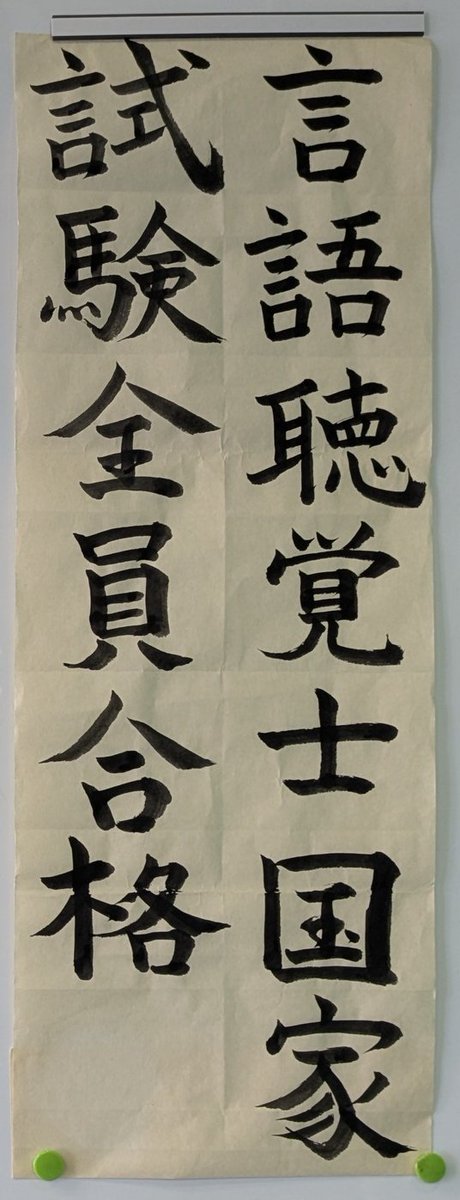 言語聴覚士国家
試験全員合格